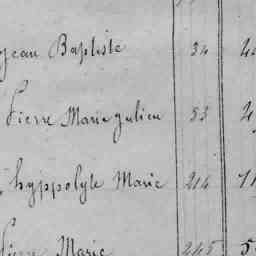 jean Baptiste 34
Pierre Marie julien 53
hyppolyte Marie 214
Pierre Marie 245